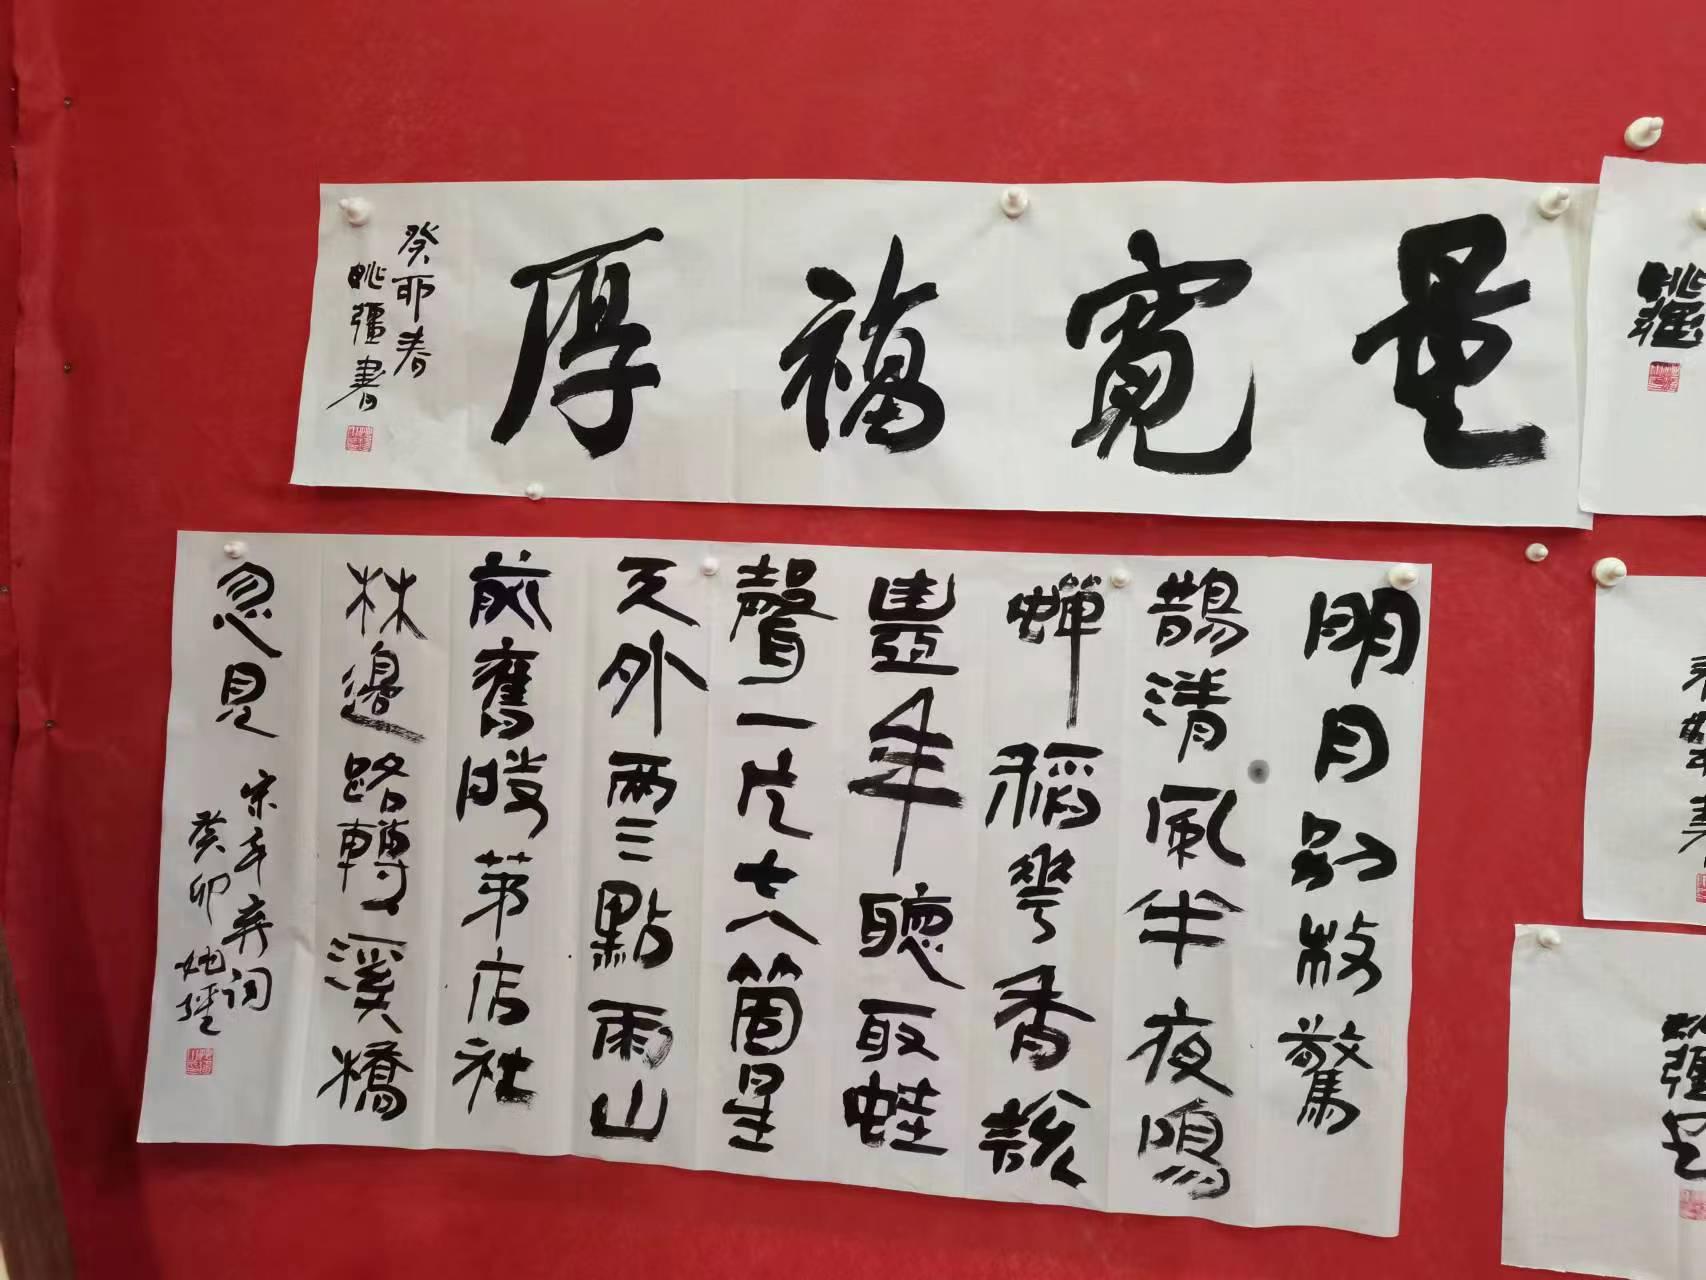 量寬福厚
癸卯春
姚疆書
明月別枝驚
鵲清風半夜鳴
蟬稻華香說
豐年聽取蛙
聲一片七八箇星
天外兩三點雨山
前舊時茅店社
林邊路轉溪橋
忽見
宋辛弃詞
癸卯姚疆